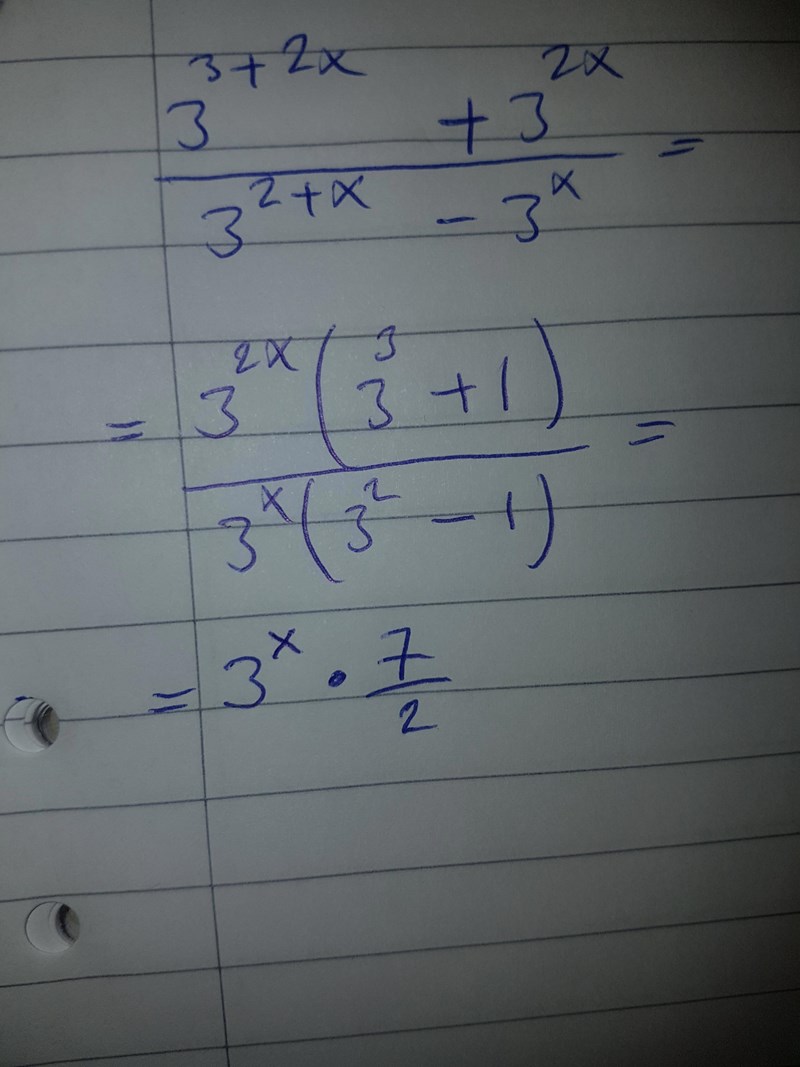 3^{3+2x} + 3^{2x}
/ 3^{2+x} - 3^{x} =
= 3^{2x} (3^{3} + 1)
/ 3^{x} (3^{2} - 1) =
= 3^{x} · 7/2